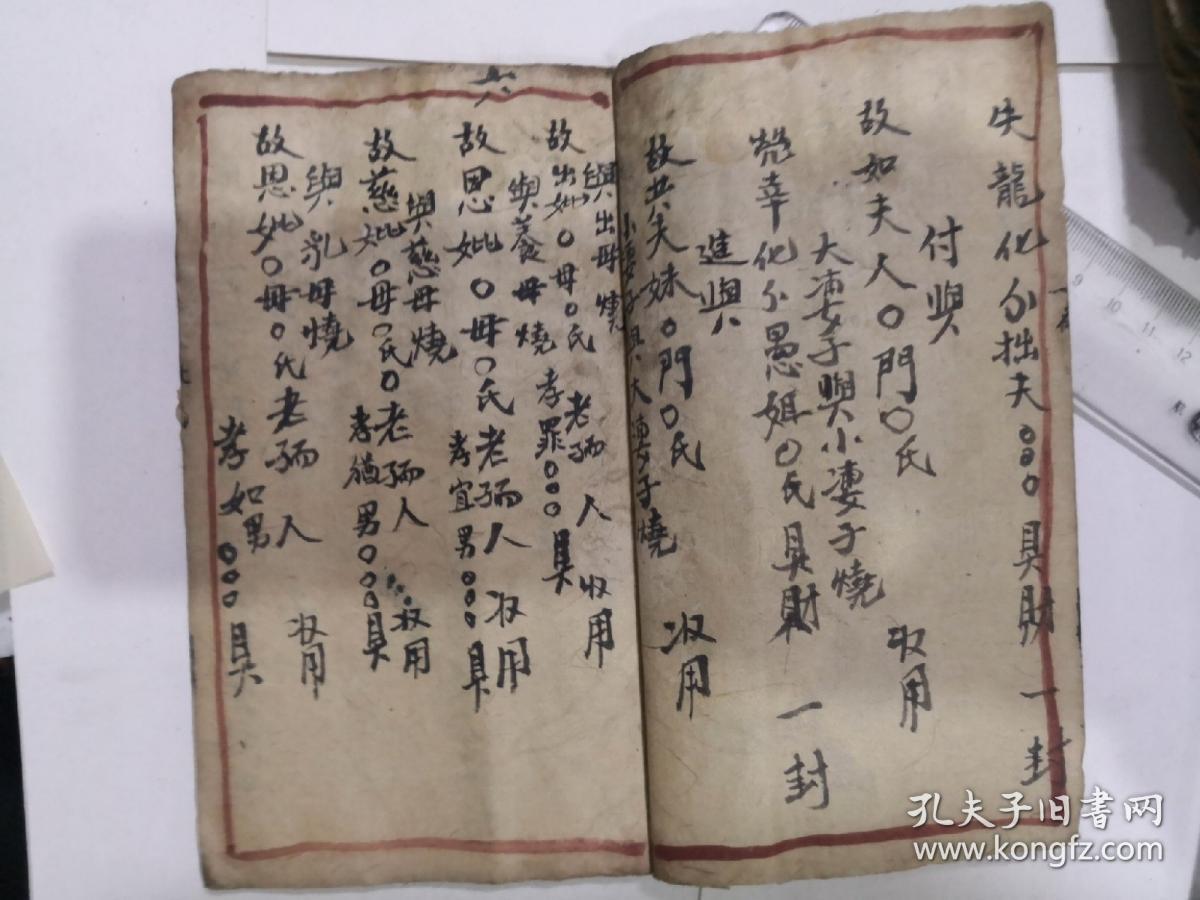 失龍化夕拙夫○○○具財一封
付與
故如夫人○門○氏 收用
大凄女子與小凄子燒
煢幸化夕愚姐○氏具財 一封
進與
故共夫妹○門○氏 收用
小妻子與大凄女子燒
與出母燒
故出妣○母○氏 老孺人 收用
與養母燒 孝罪○○○具
故恩妣○母○氏老孺人 收用
與慈母燒 孝宜男○○○具
故慈妣○母○氏○老孺人 收用
與乳母燒 孝猶男○○○具
故恩妣○母○氏老孺人 收用
孝如男○○○具
六
9 10 11 12
孔夫子旧书网
www.kongfz.com